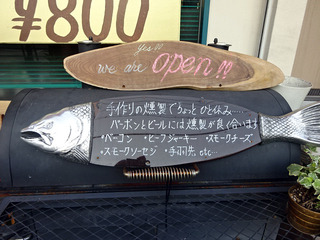 ¥800
yes!!
we are open!!
手作りの燻製でちょっとひと休み…
バーボンとビールには燻製が良く合います
・ベーコン ・ビーフジャーキー ・スモークチーズ
・スモークソーセジ ・手羽先 etc…